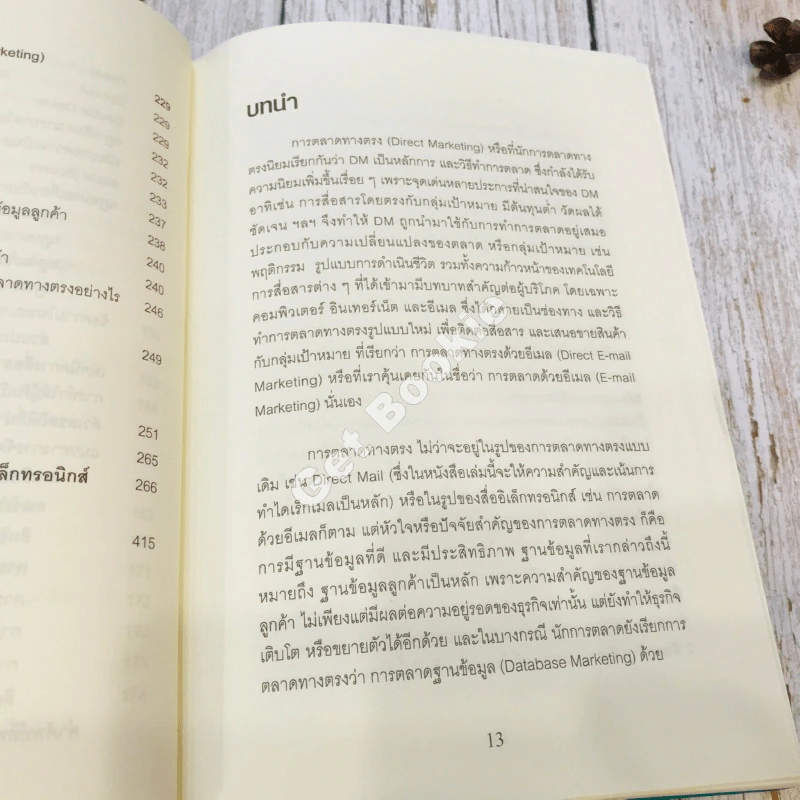 rketing)
229
229
229
232
232
233
ข้อมูลลูกค้า
237
238
240
240
ลาดทางตรงอย่างไร
246
249
251
265
ล็กทรอนิกส์
266
415
บทนำ
การตลาดทางตรง (Direct Marketing) หรือที่นักการตลาดทาง
ตรงนิยมเรียกกันว่า DM เป็นหลักการ และวิธีทำการตลาด ซึ่งกำลังได้รับ
ความนิยมเพิ่มขึ้นเรื่อย ๆ เพราะจุดเด่นหลายประการที่น่าสนใจของ DM
อาทิเช่น การสื่อสารโดยตรงกับกลุ่มเป้าหมาย มีต้นทุนต่ำ วัดผลได้
ชัดเจน ฯลฯ จึงทำให้ DM ถูกนำมาใช้กับการทำการตลาดอยู่เสมอ
ประกอบกับความเปลี่ยนแปลงของตลาด หรือกลุ่มเป้าหมาย เช่น
พฤติกรรม รูปแบบการดำเนินชีวิต รวมทั้งความก้าวหน้าของเทคโนโลยี
การสื่อสารต่าง ๆ ที่ได้เข้ามามีบทบาทสำคัญต่อผู้บริโภค โดยเฉพาะ
คอมพิวเตอร์ อินเทอร์เน็ต และอีเมล ซึ่งได้กลายเป็นช่องทาง และวิธี
ทำการตลาดทางตรงรูปแบบใหม่ เพื่อติดต่อสื่อสาร และเสนอขายสินค้า
กับกลุ่มเป้าหมาย ที่เรียกว่า การตลาดทางตรงด้วยอีเมล (Direct E-mail
Marketing) หรือที่เราคุ้นเคยกันในชื่อว่า การตลาดด้วยอีเมล (E-mail
Marketing) นั่นเอง
การตลาดทางตรง ไม่ว่าจะอยู่ในรูปของการตลาดทางตรงแบบ
เดิม เช่น Direct Mail (ซึ่งในหนังสือเล่มนี้จะให้ความสำคัญและเน้นการ
ทำไดเร็กเมลเป็นหลัก) หรือในรูปของสื่ออิเล็กทรอนิกส์ เช่น การตลาด
ด้วยอีเมลก็ตาม แต่หัวใจหรือปัจจัยสำคัญของการตลาดทางตรง ก็คือ
การมีฐานข้อมูลที่ดี และมีประสิทธิภาพ ฐานข้อมูลที่เรากล่าวถึงนี้
หมายถึง ฐานข้อมูลลูกค้าเป็นหลัก เพราะความสำคัญของฐานข้อมูล
ลูกค้า ไม่เพียงแต่มีผลต่อความอยู่รอดของธุรกิจเท่านั้น แต่ยังทำให้ธุรกิจ
เติบโต หรือขยายตัวได้อีกด้วย และในบางกรณี นักการตลาดยังเรียกการ
ตลาดทางตรงว่า การตลาดฐานข้อมูล (Database Marketing) ด้วย
13
Get Bookie